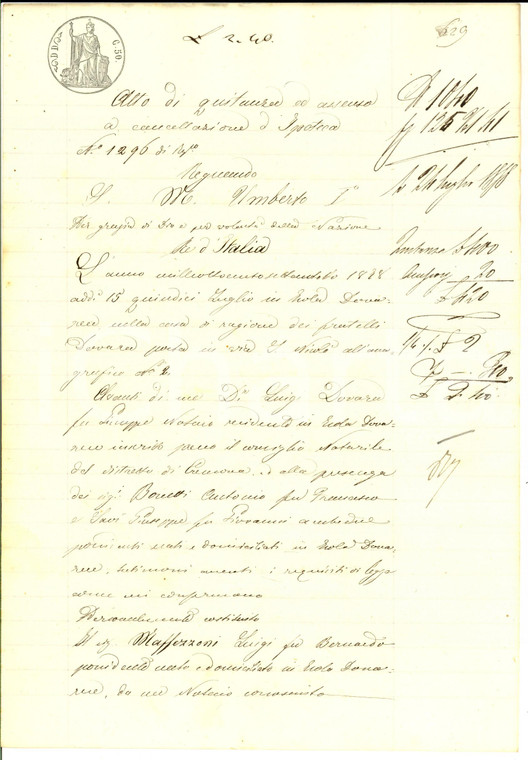 L 2.40.
629
Atto di quitanza ed assenso
a cancellazione d'Ipoteca
N.º 1296 di Rep.º
Regnando
S. M. Umberto Iº
Per grazia di Dio e per volontà della Nazione
Re d'Italia
L'anno milleottocentosettantotto 1878
addì 15 quindici Luglio in Isola Dova-
rese nella casa di ragione dei fratelli
Dovara posta in via S. Nicolò all'ana-
grafico Nº 2.
Avanti di me Dr. Luigi Dovara
fu Giuseppe Notaio residente in Isola Dova-
rese inscritto presso il consiglio Notarile
del distretto di Cremona, ed alla presenza
dei sigi Bonetti Antonio fu Francesco
e Savi Giuseppe fu Giovanni ambidue
possidenti nati e domiciliati in Isola Dova-
rese, testimoni aventi i requisiti di legge
come mi confermano
Personalmente costituito
Il sig. Maffezzoni Luigi fu Bernardo
possidente nato e domiciliato in Isola Dova-
rese, da me Notaio conosciuto
N 1040
24 Luglio 1878
400
20
420